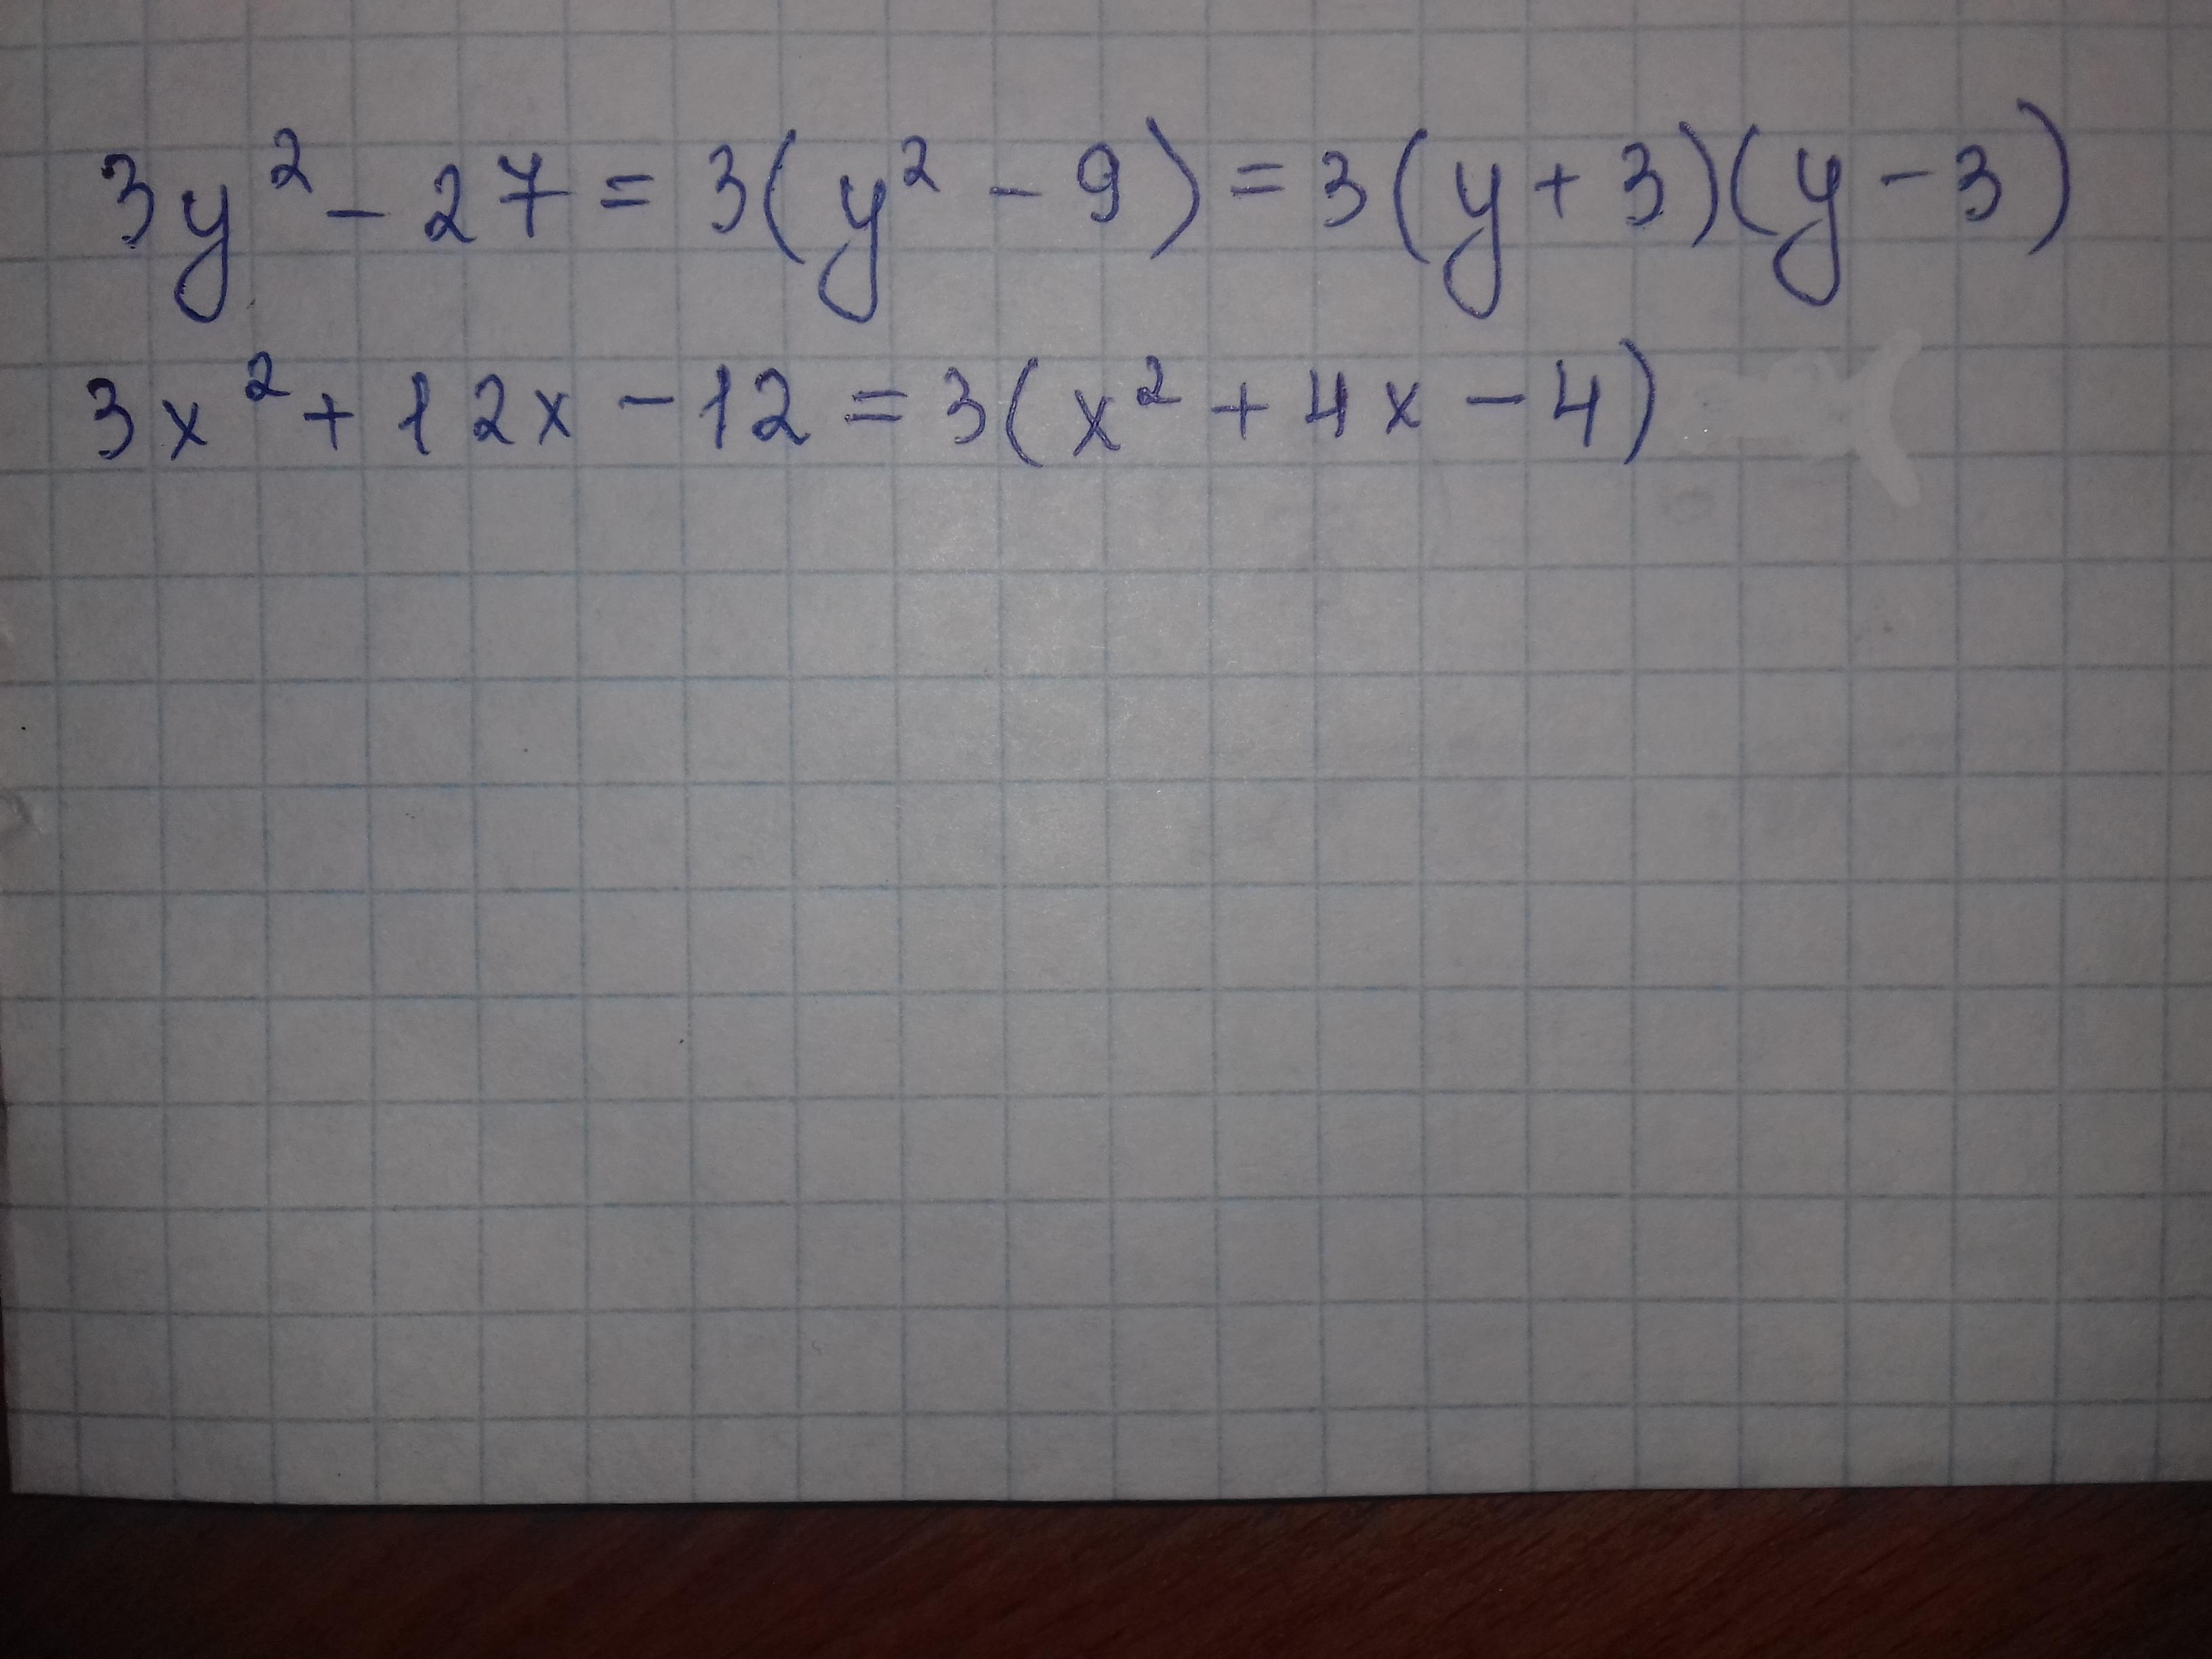 3y² - 27 = 3(y² - 9) = 3(y + 3)(y - 3)
3x² + 12x - 12 = 3(x² + 4x - 4)